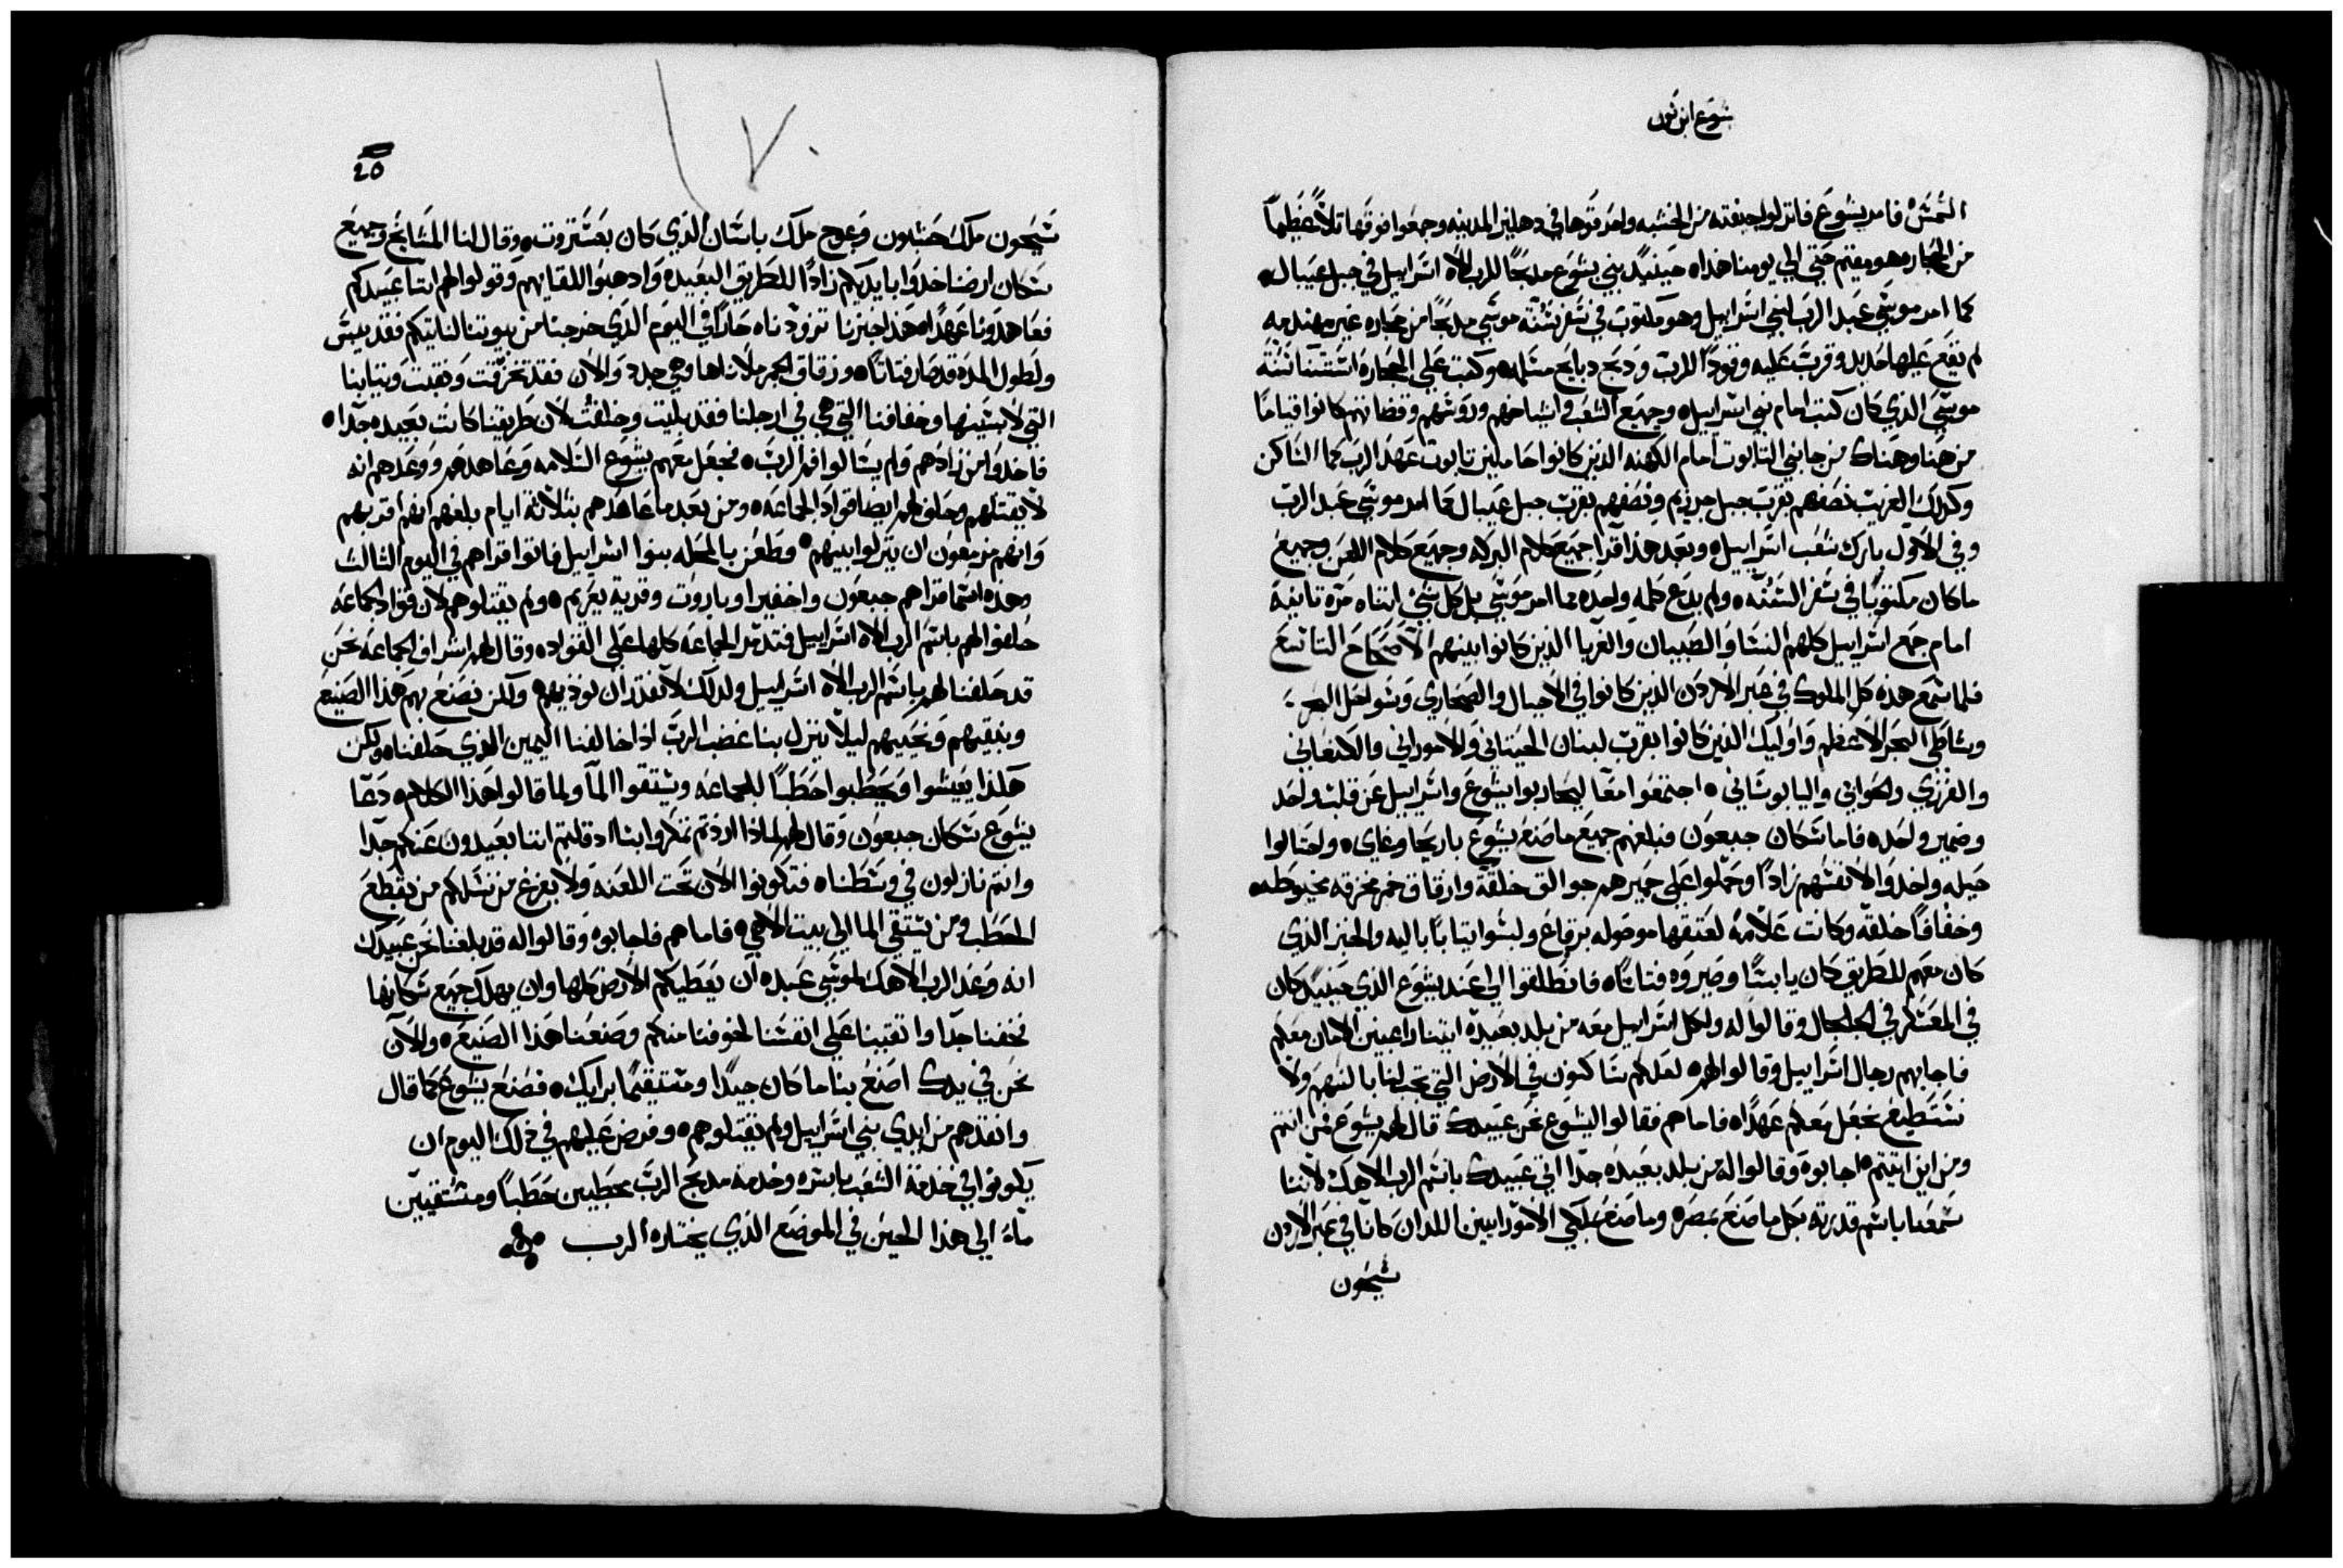 يشوع ابن نون
الشمس فامر يشوع فانزلوا جيفته من الخشبه واحدقوها في دهليز المدينه وجمعوا فوقها تلاً عظيماً
من الحجاره هو مقيم حتي الي يومنا هذا ه حينيدٍ بني يشوع مدبحًا للرب الاه اسراييل في جبل عيبال ه
كما امر موسي عبد الرب لبني اسراييل وهو مكتوب في سفر سنة موسي مدبحًا من حجاره غير مهندمه
لم تقع عليها حديد وقرب عليه وقودًا للرب ودبح دبايح مسلمه وكتب علي الحجاره استثنا سنة
موسي الذي كان كتب امام بني اسراييل ه وجميع الشعب واشياخهم وروسهم وقضاتهم كانوا قيامًا
من هنا وهناك من جانبي التابوت امام الكهنه الذين كانوا حاملين تابوت عهد الرب كما الساكن
وكذلك الغريب نصفهم بقرب جبل جرزيم ونصفهم بقرب جبل عيبال كما امر موسي عبد الرب
وفي الاول بارك شعب اسراييل ه وبعد هذا قرا جميع كلام البركه وجميع كلام اللعن وجميع
ما كان مكتوبًا في سفر السنه ه ولم يدع كلمه واحده مما امر موسي بل كل شي اتناه مره تانيه
امام جمع اسراييل كلهم النسا والصبيان والغربا الذين كانوا بينهم الاصحاح التاسع
فلما سمع هذه كل الملوك في عبر الاردن الذين كانوا في الاجبال والصحاري وسواحل البحر
وشاطي البحر الاعظم واوليك الذين كانوا بقرب لبنان الحيتاني والاموراني والكنعاني
والفرزي والحواني واليابوساني ه اجتمعوا معًا ليحاربوا يشوع واسراييل عن قلب واحد
وضمير واحده فاما سكان جبعون فبلغهم جميع ما صنع يشوع باريحا وغاي ه واحتالوا
حيله واخدوا لانفسهم زادًا وحملوا علي حميرهم جوالق خلقة وازقاق خمر مخرقه مخيوطه
وخفافًا خلقه وكانت علامة لعتقها موصوله برقاع ولبسوا ثيابًا باليه والخبز الذي
كان معهم للطريق كان يابسًا وصيروه فتاتًا ه فانطلقوا الي عند يشوع الذي حينيدٍ كان
في المعسكر في الجلجال وقالوا له ولكل اسراييل معه من بلد بعيدة اتينا راغبين الامان معكم
فاجابهم رجال اسراييل وقالوا لهم ه لعلكم ساكنون في الارض التي تجب لنا بالسهم ولا
نستطيع نجعل معكم عهدًا ه فاما هم فقالوا ليشوع نحن عبيدك قال لهم يشوع من انتم
ومن اين اتيتم ه اجابوه وقالوا له من بلد بعيده جدًا اتي عبيدك باسم الرب الاهك لاننا
سمعنا باسم قدرته بكل ما صنع بمصر ه وما صنع بملكي الامورانيين اللدان كانا في عبر الاردن
سيحون
25
سيحون ملك حشبون وعوج ملك باسان الذي كان بعشتروت ه وقال لنا المشايخ وجميع
سكان ارضنا خدوا بايديكم زادًا للطريق البعيده وادهبوا للقايهم وقولوا لهم اننا عبيدكم
فعاهدونا عهدًا ه هذا خبزنا تزودناه حارًا في اليوم الذي خرجنا من بيوتنا لناتيكم فقد يبس
ولطول المده قد صار فتاتًا ه وزقاق الخمر ملاناها وهي جدد والان فقد تخرقت ونقبت وثيابنا
التي لابسينها وخفافنا التي هي في ارجلنا فقد بليت وخلقت لان طريقنا كانت بعيده جدًا ه
فاخدوا من زادهم ولم يسالوا فم الرب ه فجعل معهم يشوع السلامه وعاهدهم ووعدهم انه
لا يقتلهم وحلفوا لهم ايضًا قواد الجماعه ه ومن بعد ما عاهدهم بثلاثة ايام بلغهم انهم اقربهم
وانهم مزمعون ان ينزلوا بينهم ه وظعن بالمحله بنوا اسراييل فاتوا قراهم في اليوم الثالث
وهذه اسما قراهم جبعون واخفيرا وباروت وقرية يعريم ه ولم يقتلوهم لان قواد الجماعه
حلفوا لهم باسم الرب الاه اسراييل فتدمر الجماعه كلها علي القواد ه وقال لهم اشراف الجماعه نحن
قد حلفنا لهم باسم الرب الاه اسراييل ولدلك لا نقدر ان نوذيهم ولكن نصنع بهم هذا الصنيع
ونبقيهم ونحييهم ليلا ينزل بنا غضب الرب اذا خالفنا اليمين الذي حلفناه ولكن
هكذا يعيشوا ويحطبوا حطبًا للجماعه ويستقوا المآ ولما قالوا هذا الكلام ه دعا
يشوع سكان جبعون وقال لهم لماذا اردتم تمكروا بنا اد قلتم اننا بعيدون عنكم جدًا
وانتم نازلون في وسطنا ه فتكونوا الان تحت اللعنه ولا يفرغ من نسلكم من يقطع
الحطب ومن يستقي الما الي بيت الاهي ه فاما هم فاجابوه وقالوا له قد بلغنا نحن عبيدك
انه وعد الرب الاهك لموسي عبده ان يعطيكم الارض كلها وان يهلك جميع سكانها
فخفنا جدًا واتقينا علي انفسنا لخوفنا منكم وصنعنا هذا الصنيع ه والان
نحن في يدك اصنع بنا ما كان جيدًا ومستقيمًا برايك ه فصنع يشوع كما قال
وانقذهم من ايدي بني اسراييل ولم يقتلوهم ه وفرض عليهم في ذلك اليوم ان
يكونوا في خدمة الشعب باسره وخدمة مدبح الرب محطبين حطبًا ومستقيين
ماءً الي هذا الحين في الموضع الذي يختاره الرب